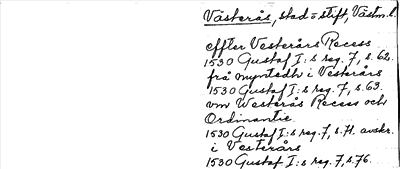 Västerås, stad o stift, Västm. l.
effter Vesterårs Recess
1530 Gustaf I:s reg. 7, s. 62.
frå myntedh i Vesterårs
1530 Gustaf I:s reg. 7, s. 63.
vm Westerås Recess och
Ordinantie
1530 Gustaf I:s reg. 7, s. 71. avskr.
i Vesterårs
1530 Gustaf I:s reg. 7, s. 76.